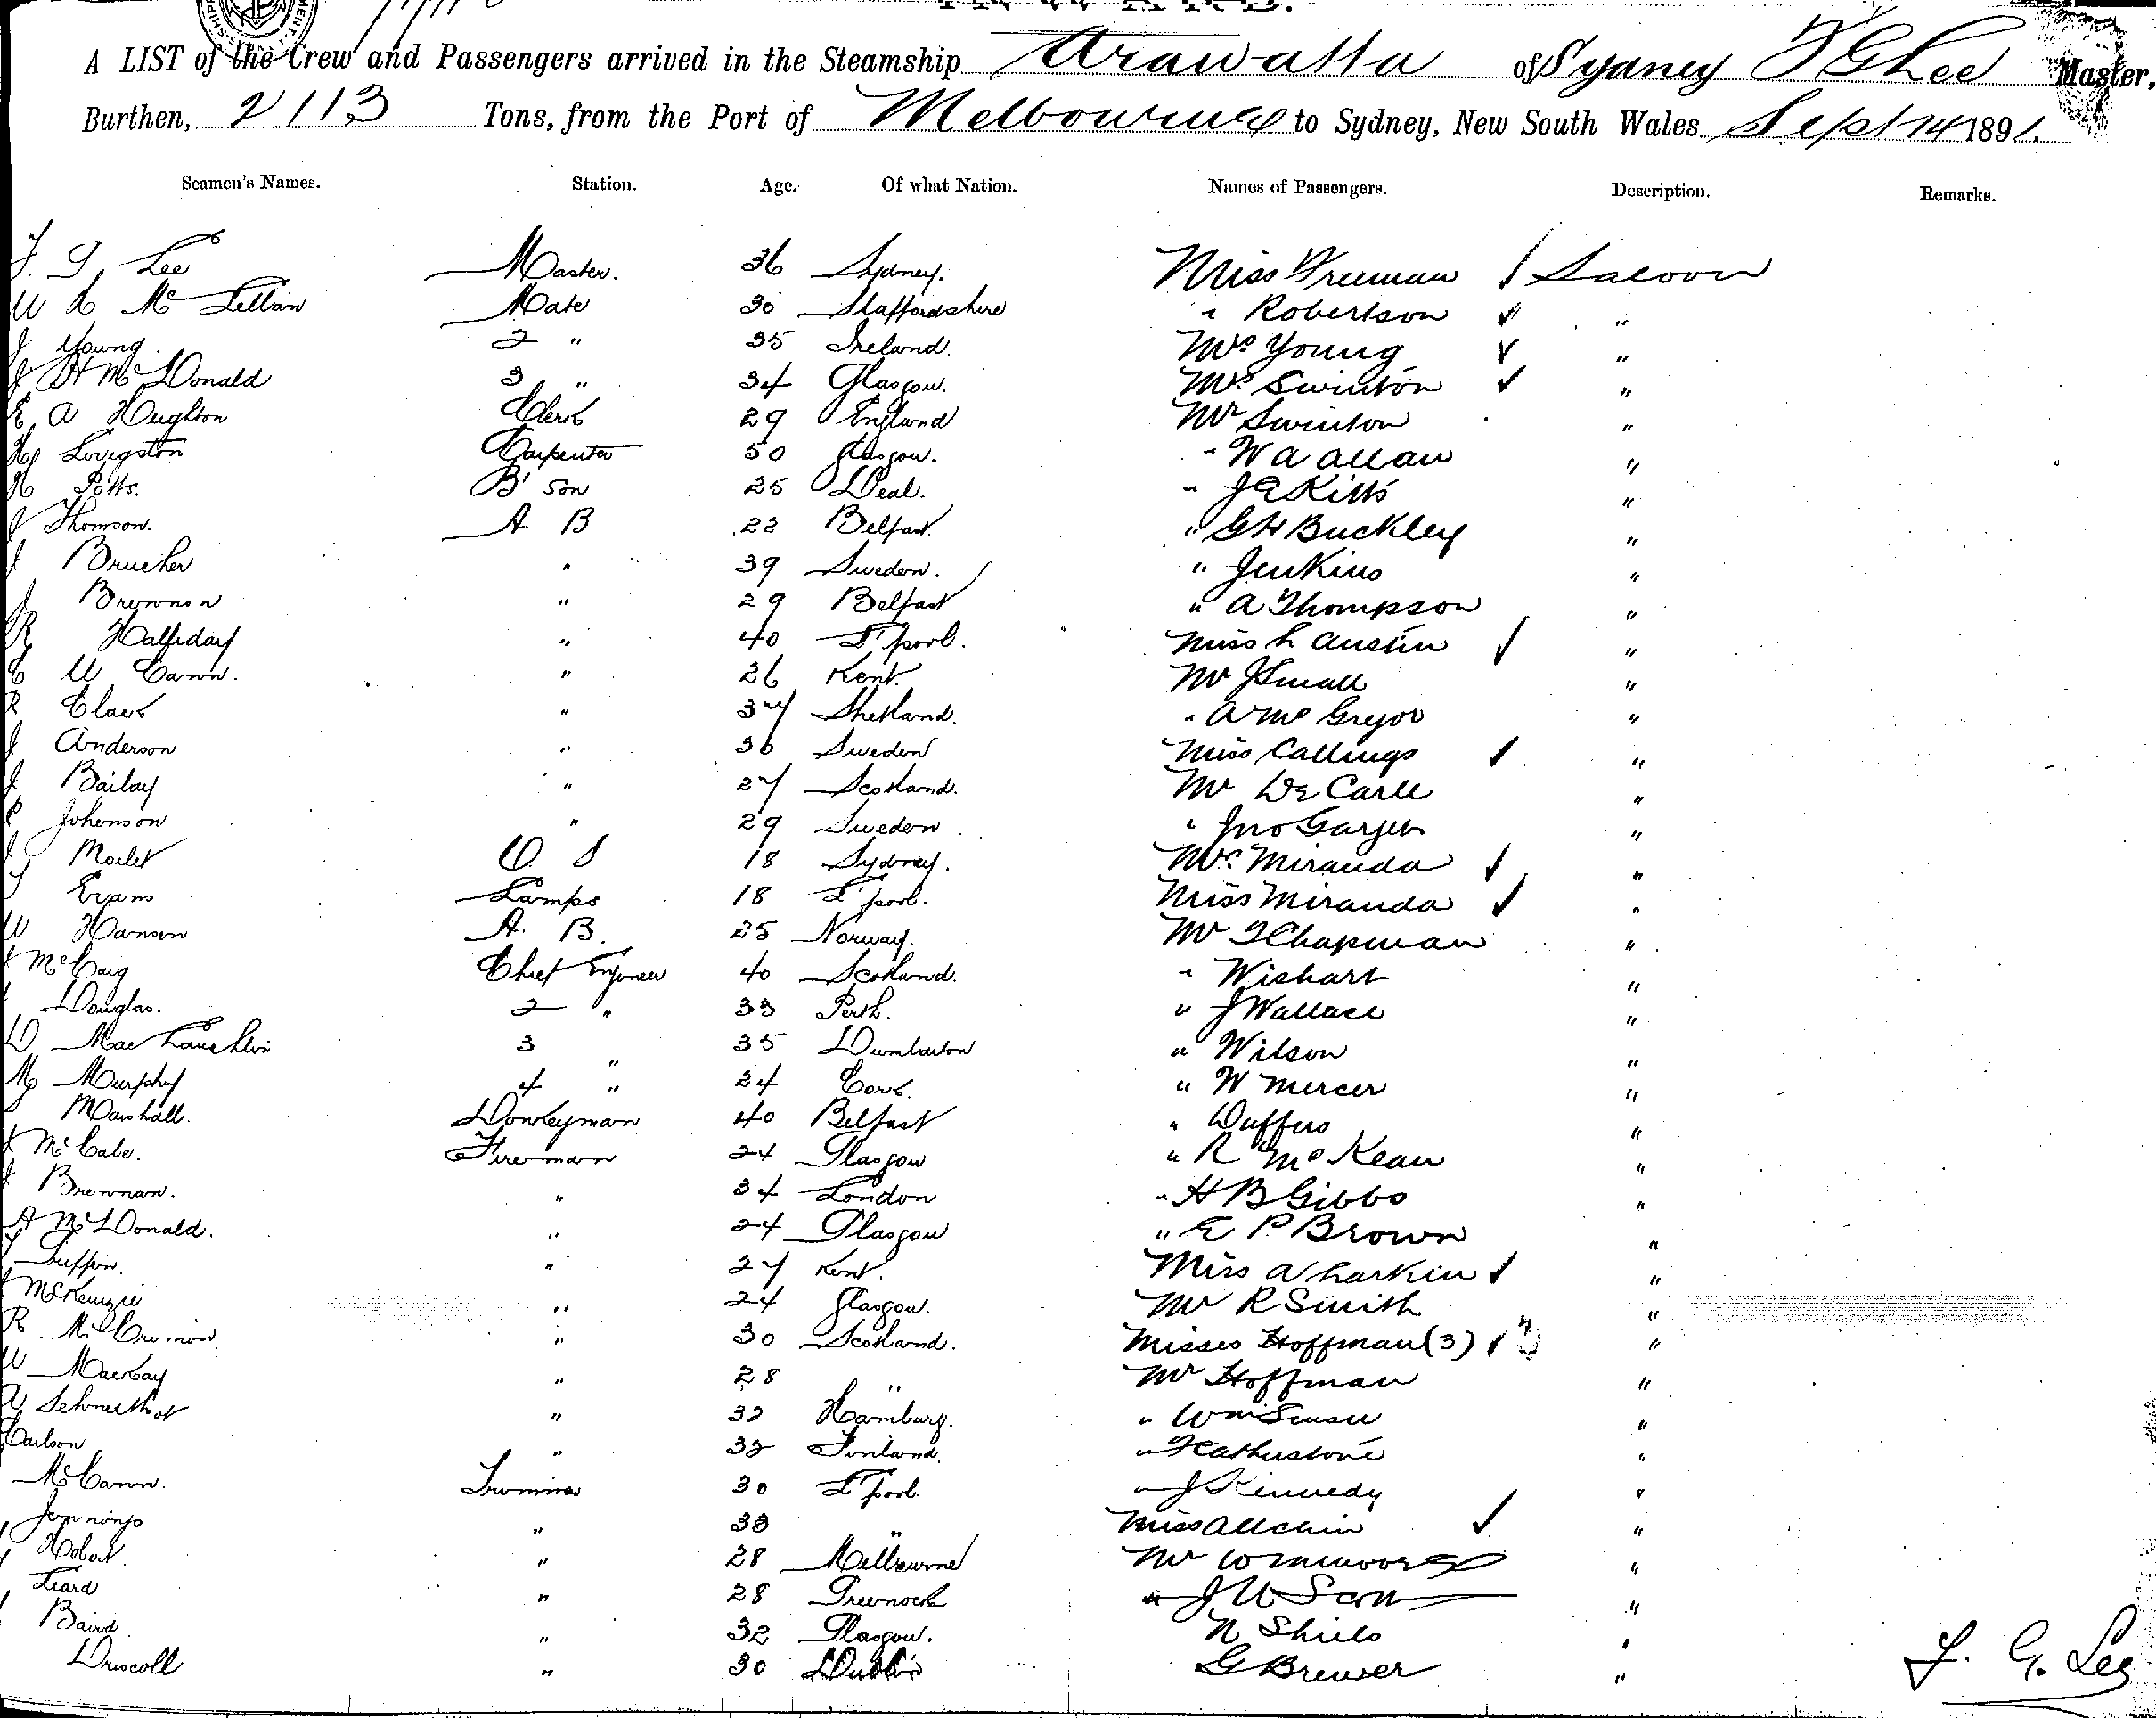 A LIST of the Crew and Passengers arrived in the Steamship Arawatta of Sydney F G Lee Master,
Burthen, 2113 Tons, from the Port of Melbourne to Sydney, New South Wales Sept 14 1891.
Seamen's Names. Station. Age. Of what Nation. Names of Passengers. Description. Remarks.
F. G. Lee Master. 36 Sydney. Miss Freeman Saloon
Mc Lellan Mate 30 Staffordshire " Robertson "
J Young. 2 " 35 Ireland. Mrs Young "
J H McDonald 3 " 34 Glasgow. Mrs Swinton "
E A Houghton Clerk 29 England Mr Swinton "
Hy Livingston Carpenter 50 Glasgow. " W A Allan "
H Potts. B'son 25 Deal. " J E Kitts "
J Thomson. A. B 22 Belfast. " G H Buckley "
J Brucher " 39 Sweden. " Jenkins "
J Brennon " 29 Belfast " A Thompson "
R Halliday " 40 L'pool. Miss L Austin "
C W Cann. " 26 Kent. Mr J Small "
R Clark " 37 Shetland. " A McGregor "
J Anderson " 36 Sweden Miss Callings "
J Bailay " 27 Scotland. Mr De Carle "
Johnson " 29 Sweden " Jno "
O. S 18 Sydney. Mrs Miranda "
Evans Lamps 18 L'pool. Miss Miranda "
W Hansen A. B. 25 Norway. Mr T Chapman "
McCaig Chief Engineer 40 Scotland. " Wishart "
Douglas. 2 " 33 Perth. " J Wallace "
D MacLauchlin 3 " 35 Dumbarton " Wilson "
M Murphy 4 " 24 Cork. " W Mercer "
Marshall. Donkeyman 40 Belfast " Duffus "
McCabe. Fireman 24 Glasgow " R McKean "
J Brennan. " 34 London " H B Gibbs "
A McDonald. " 24 Glasgow " E P Brown "
" 27 Kent. Miss A Larkin "
McKenzie " 24 Glasgow. Mr R Smith "
R McCrimmon. " 30 Scotland. Misses Hoffman (3) "
W Mackay " 28 " Mr Hoffman "
" 32 Hamburg. " Wm "
Carlson " 32 Finland. " Featherstone "
McCann. Trimmer 30 L'pool. " J Kennedy "
Jennings " 33 " Miss Allchin "
Hobart. " 28 Melbourne Mr W m moore "
" 28 Greenock " J W Scott "
Baird. " 32 Glasgow. N Shiels "
Driscoll " 30 Dublin G Brewer "
F. G. Lee